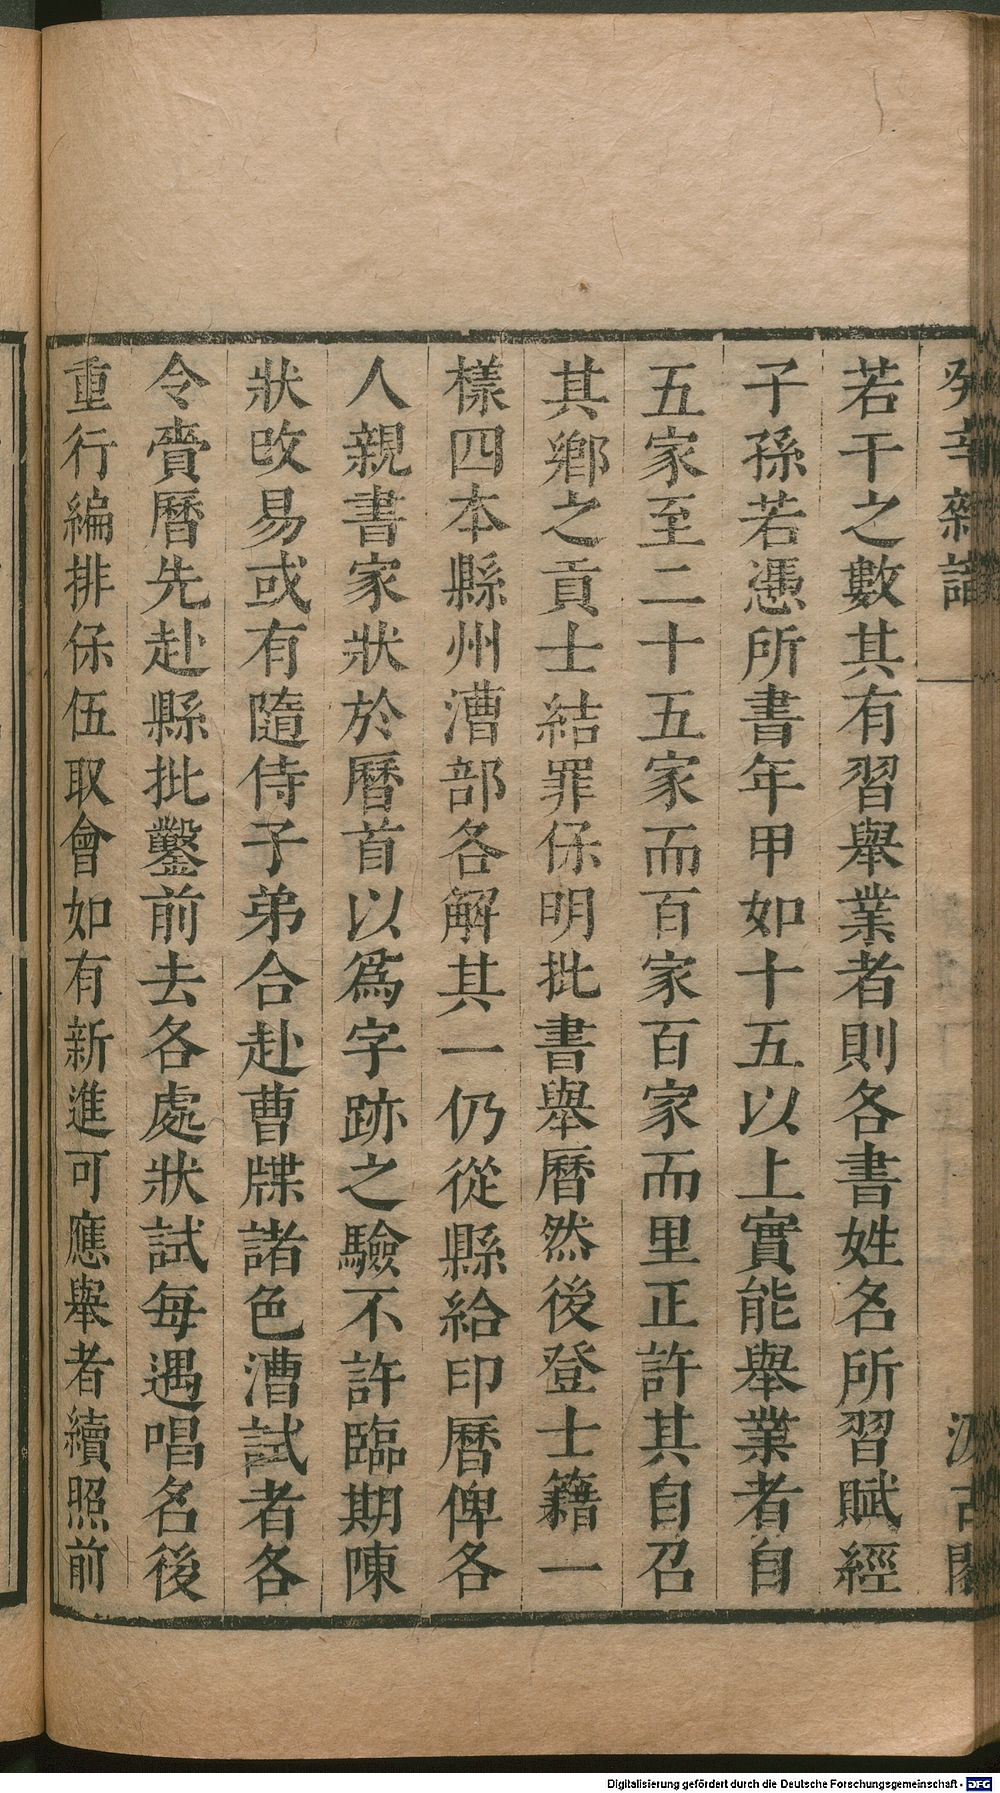 癸辛雜識
汲古閣
若干之數其有習舉業者則各書姓名所習賦經
子孫若憑所書年甲如十五以上實能舉業者自
五家至二十五家而百家百家而里正許其自召
其鄉之貢士結罪保明批書舉曆然後登士籍一
樣四本縣州漕部各解其一仍從縣給印曆俾各
人親書家狀於曆首以爲字跡之驗不許臨期陳
狀改易或有隨侍子弟合赴曹牒諸色漕試者各
令賫曆先赴縣批鑿前去各處狀試每遇唱名後
重行編排保伍取會如有新進可應舉者續照前
Digitalisierung gefördert durch die Deutsche Forschungsgemeinschaft - DFG